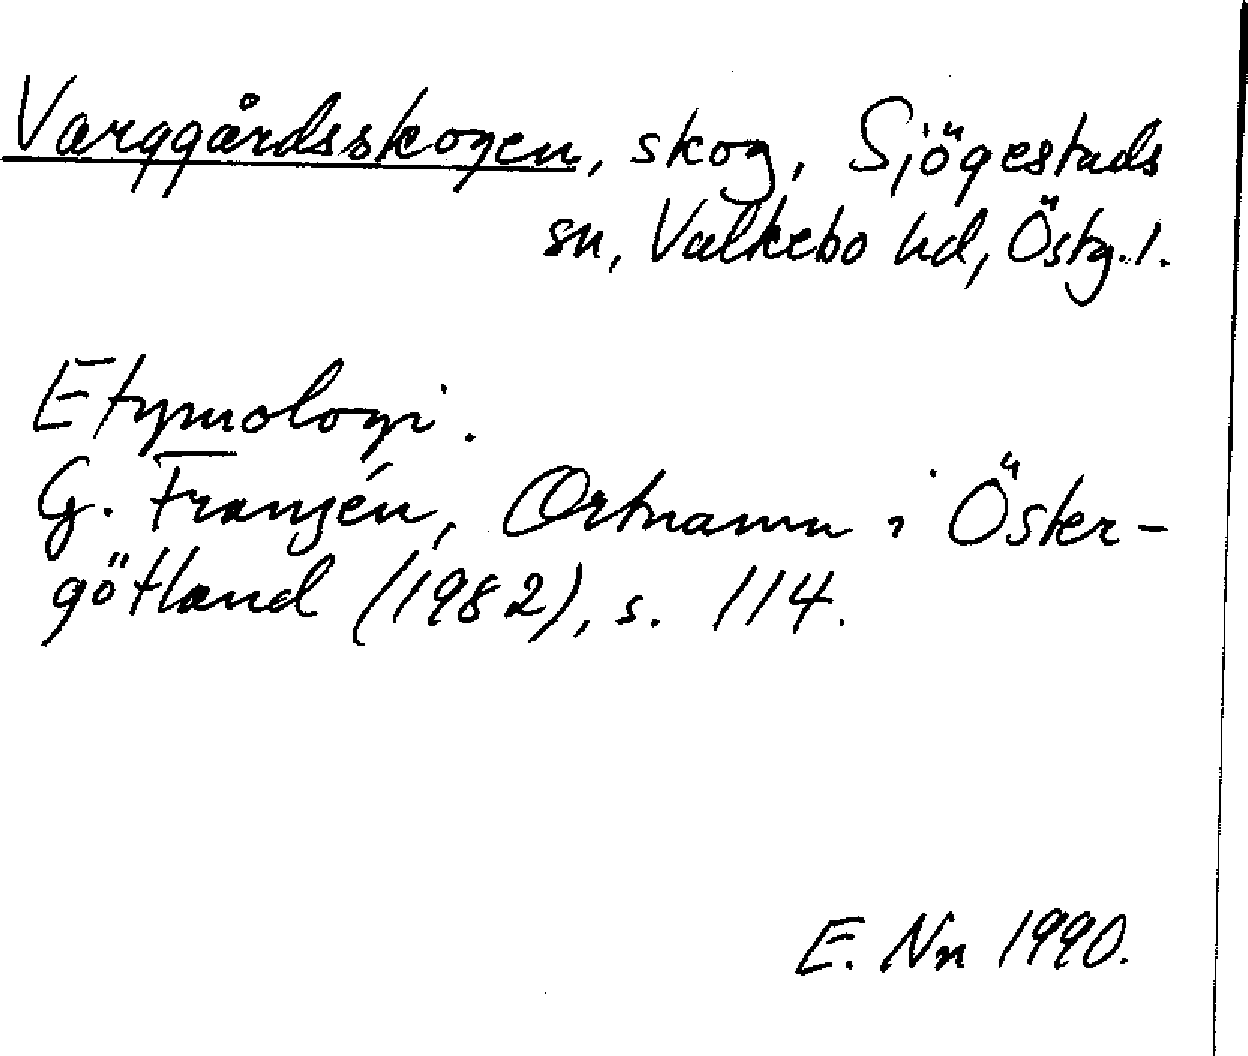 Varggårdsskogen, skog, Sjögestads
sn, Valkebo hd, Östg.l.
Etymologi.
G. Franzén, Ortnamn i Öster-
götland (1982), s. 114.
E. Nn 1990.